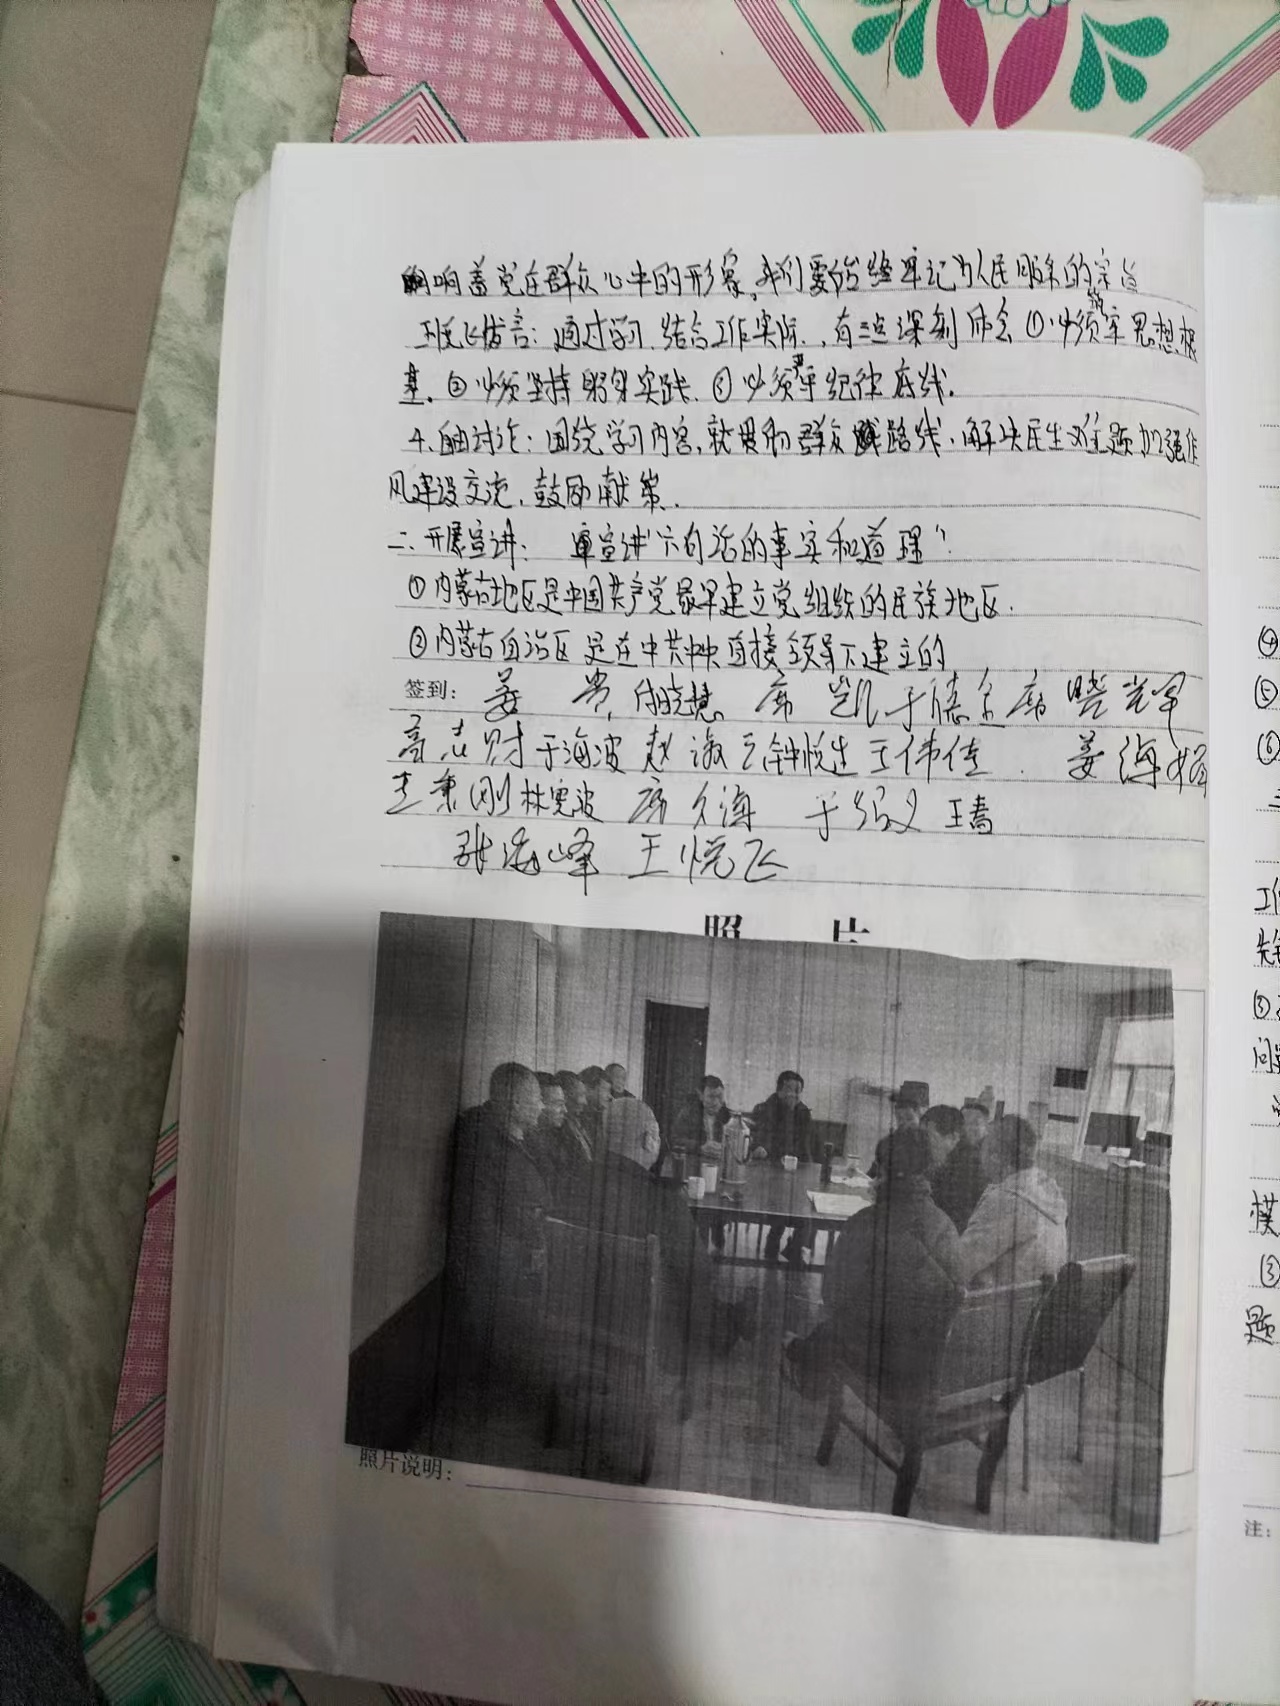 影响着党在群众心中的形象,我们要始终牢记为人民服务的宗旨
王悦飞发言:通过学习,结合工作实际,有三点深刻体会①必须筑牢思想根
基.②必须坚持躬身实践.③必须严牢纪律底线.
4.自由讨论:围绕学习内容,就贯彻群众路线,解决民生难题加强作
风建设交流,鼓励献策.
二、开展宣讲: 宣讲“六句话的事实和道理”
①内蒙古地区是中国共产党最早建立党组织的民族地区.
②内蒙古自治区是在中共中央直接领导下建立的
签到: 姜 贵 付晓慧 席 凯 于德全 席晓光 军
高志财 于海波 赵淑云 钟悦生 王伟佳 姜海娟
王秉刚 林宪波 席久海 于绍文 王青
张海峰 王悦飞
照 片
照片说明:
④
⑤
⑥
二
工作
③
问题
模
③
题
注: